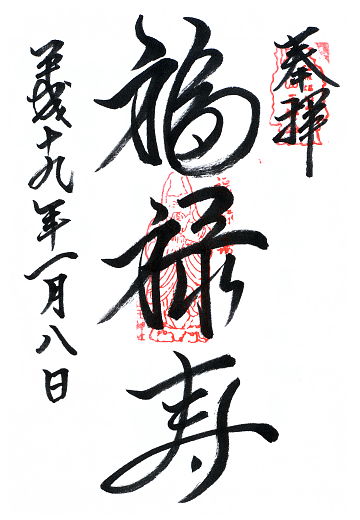 奉拝
福禄寿
平成十九年一月八日